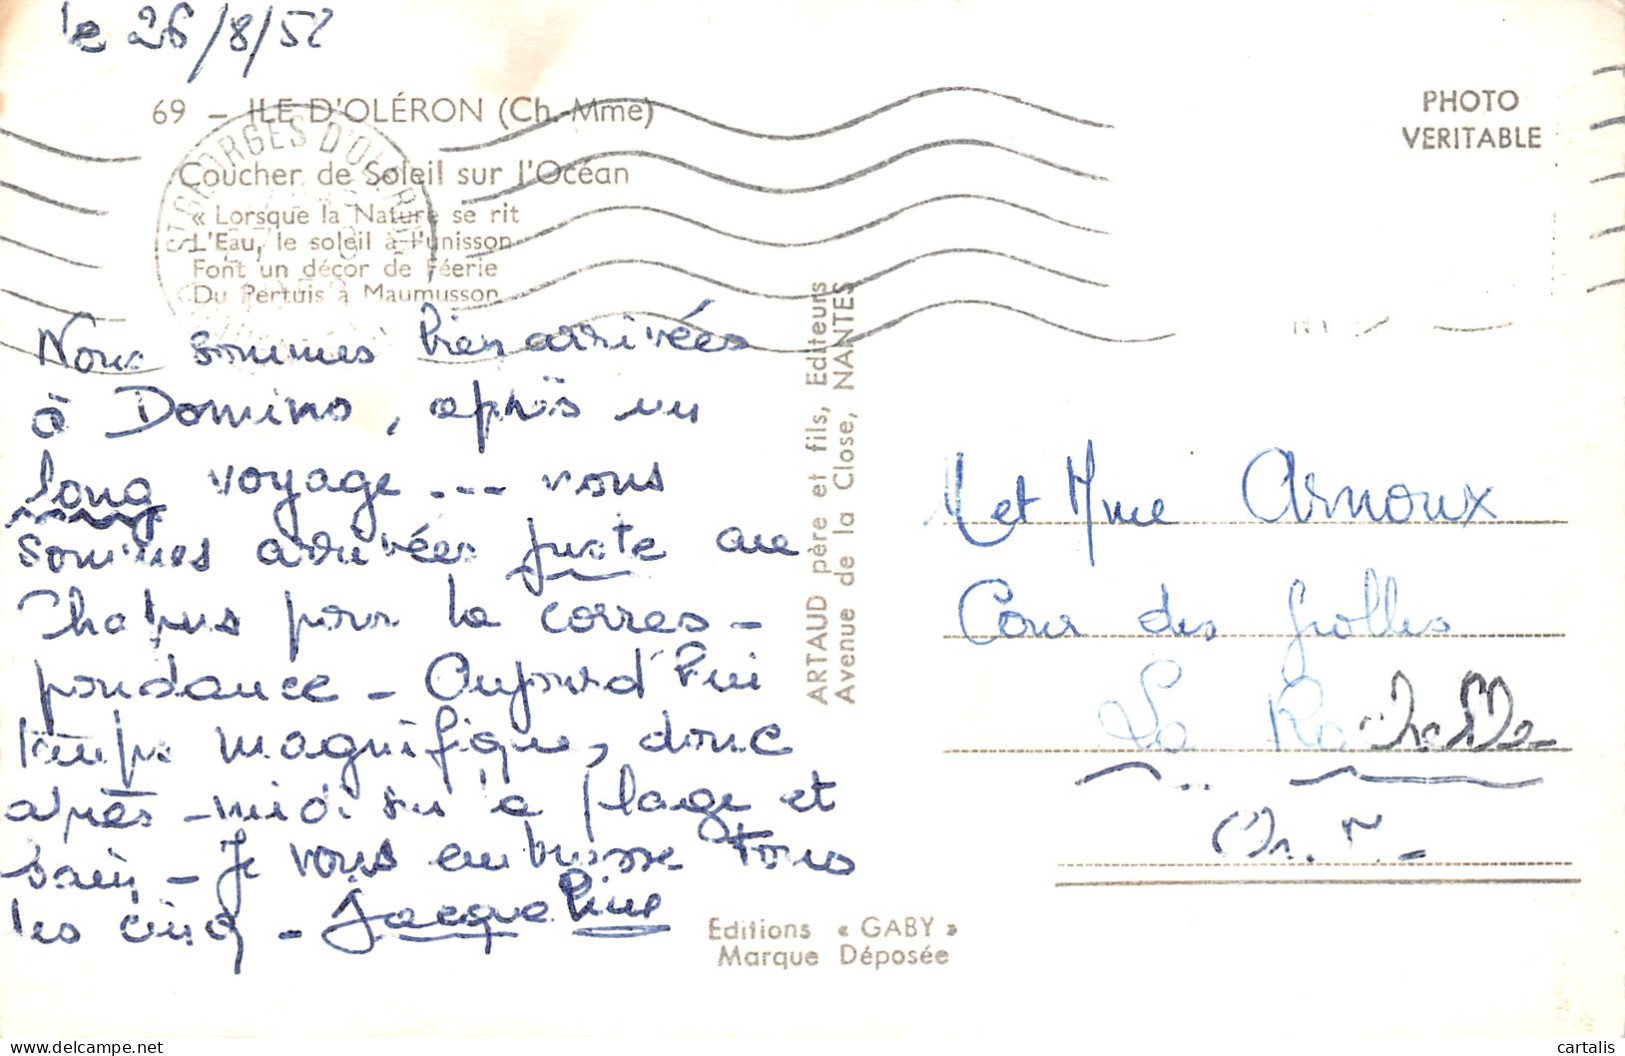 le 26/8/52
69 - ILE D'OLÉRON (Ch.-Mme)
Coucher de Soleil sur l'Océan
« Lorsque la Nature se rit
L'Eau, le soleil à l'unisson
Font un décor de Féerie
Du Pertuis à Maumusson
ST GEORGES D'OLERON
PHOTO
VERITABLE
Nous sommes bien arrivées
à Domino, après un
long voyage --- nous
sommes arrivées juste au
Chapus pour la corres-
pondance - Aujourd'hui
temps magnifique, donc
après-midi sur la plage et
bain - Je vous embrasse tous
les cinq - Jacqueline
ARTAUD père et fils, Editeurs
Avenue de la Close, NANTES
M et Mme Arnoux
Cour des
La Rochelle
Ch. M.
Editions « GABY »
Marque Déposée
cartalis